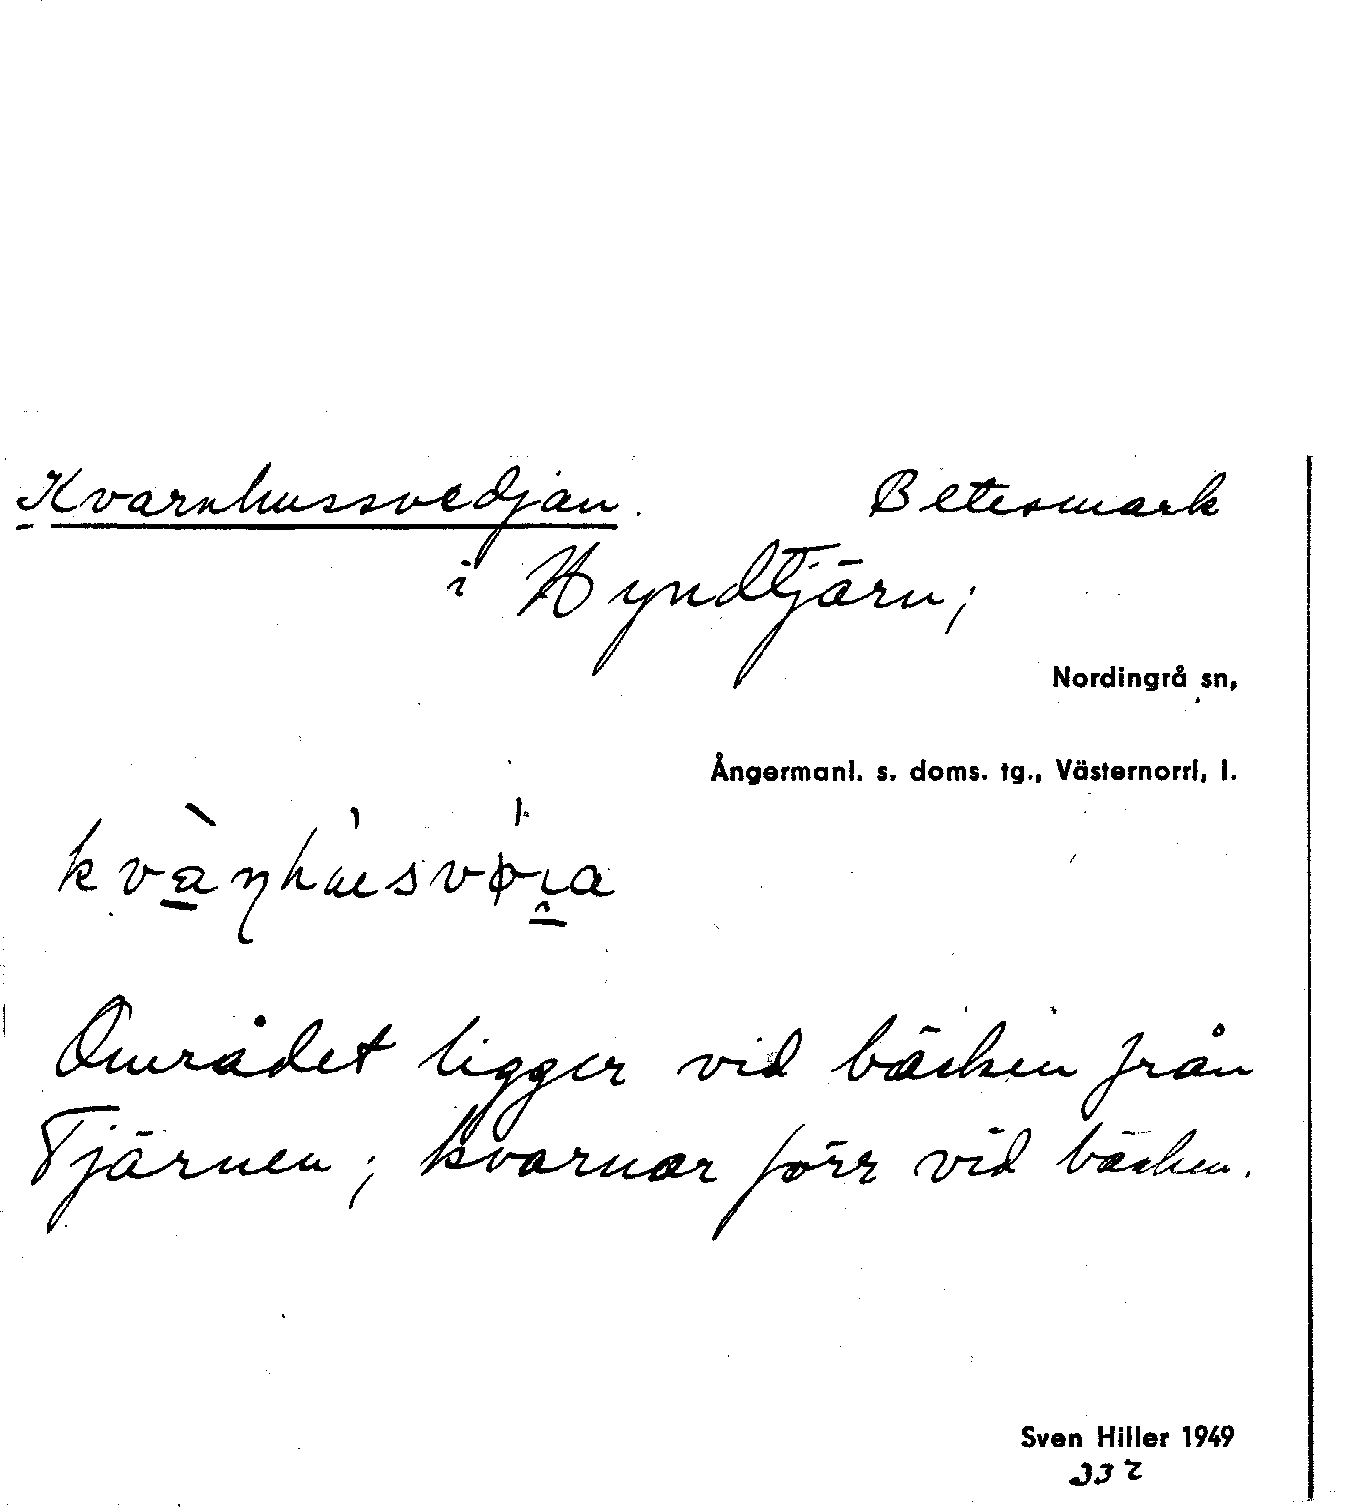 Kvarnhussvedjan. Betesmark
i Hyndtjärn;
Nordingrå sn,
Ångermanl. s. doms. tg., Västernorrl, l.
Området ligger vid bäcken från
Tjärnen; kvarnar förr vid bäcken.
Sven Hiller 1949
332